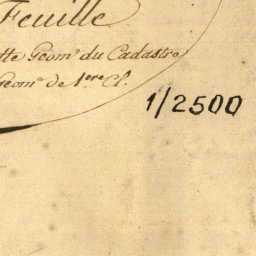 Feuille
tte Geom.e du Cadastre
Geom.e de 1.ere Cl.
1/2500